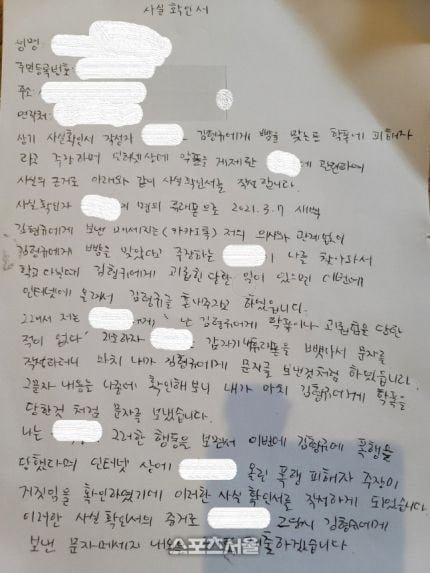 사실확인서
성명:
주민등록번호:
주소:
연락처:
상기 사실확인서 작성자 김형규에게 뺨을 맞는등 학폭에 피해자
라고 주장하며 인터넷상에 악플을 게재한 에 관련하여
사실의 근거로 아래와 같이 사실확인서를 작성합니다.
사실확인자 명의 휴대폰으로 2021.3.7 새벽
김형규에게 보낸 메세지는 (카카오톡) 저의 의사와 관계없이
김형규에게 뺨을 맞았다고 주장하는 이 나를 찾아와서
학교다닐때 김형규에게 괴롭힘 당한 일이 있으면 이번에
인터넷에 올려서 김형규를 혼내주자고 하였습니다.
그래서 저는 에게 난 김형규에게 학폭이나 괴롭힘을 당한
적이 없다 하자 갑자기 휴대폰을 뺏아서 문자를
작성하더니 마치 내가 김형규에게 문자를 보낸것처럼 하였습니다
그문자 내용는 나중에 확인해보니 내가 마치 김형규에게 학폭을
당한것 처럼 문자를 보냈습니다.
나는 그러한 행동을 보면서 이번에 김형규에 폭행을
당했다며 인터넷 상에 올린 폭행 피해자 주장이
거짓임을 확인하였기에 이러한 사실확인서를 작성하게 되었습니다.
이러한 사실확인서의 증거로 그당시 김형규에게
보낸 문자메세지 내용을 제출하겠습니다.
스포츠서울